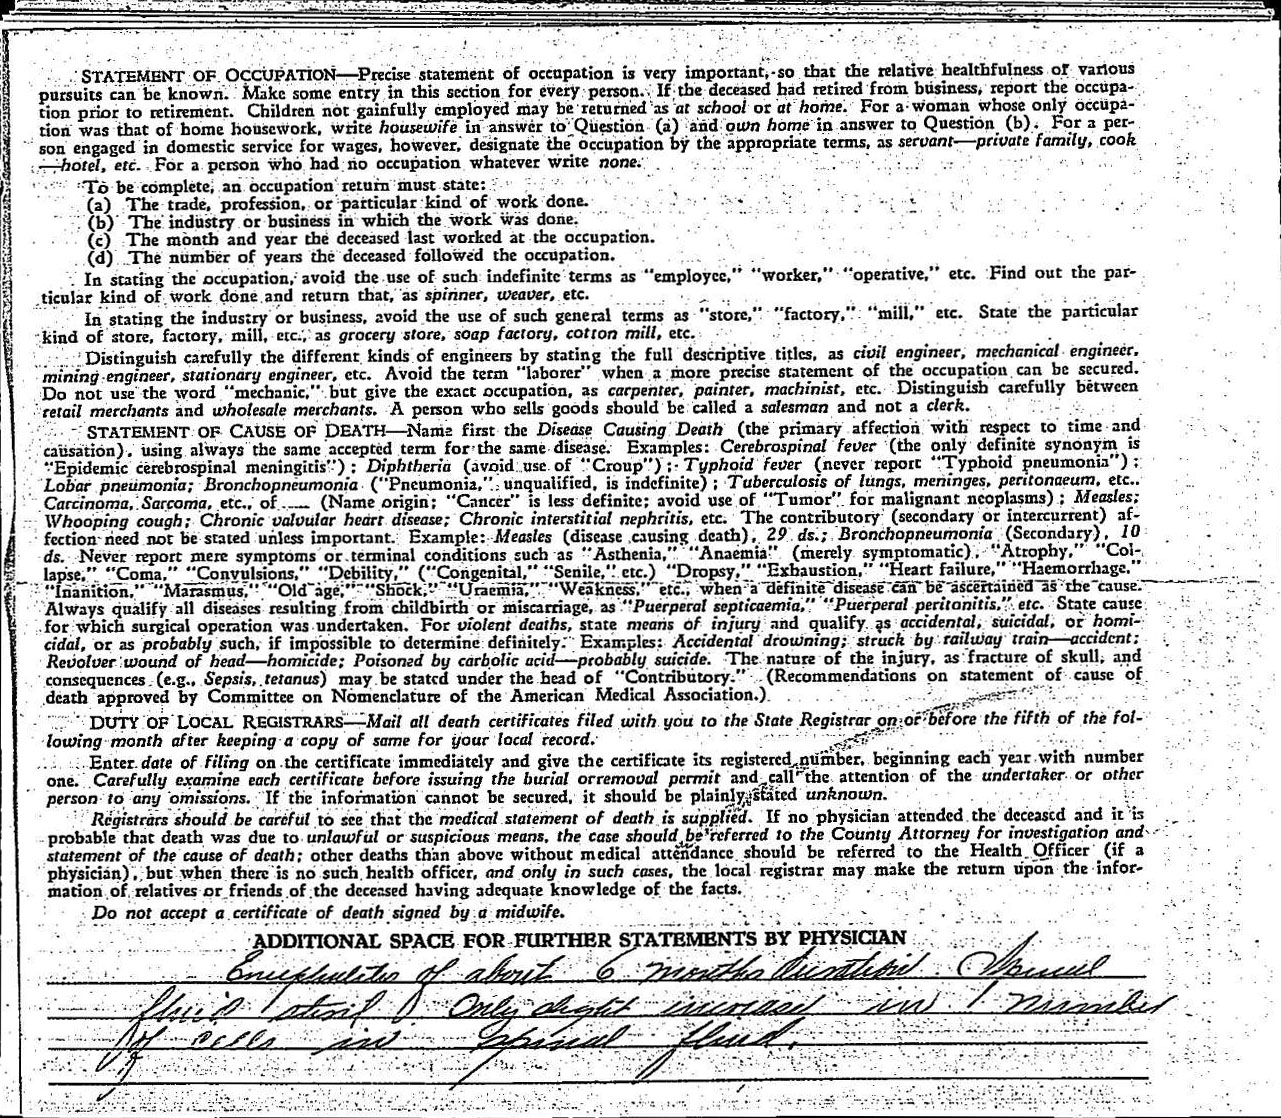 STATEMENT OF OCCUPATION—Precise statement of occupation is very important, so that the relative healthfulness of various
pursuits can be known. Make some entry in this section for every person. If the deceased had retired from business, report the occupa-
tion prior to retirement. Children not gainfully employed may be returned as at school or at home. For a woman whose only occupa-
tion was that of home housework, write housewife in answer to Question (a) and own home in answer to Question (b). For a per-
son engaged in domestic service for wages, however, designate the occupation by the appropriate terms, as servant—private family, cook
—hotel, etc. For a person who had no occupation whatever write none.
To be complete, an occupation return must state:
(a) The trade, profession, or particular kind of work done.
(b) The industry or business in which the work was done.
(c) The month and year the deceased last worked at the occupation.
(d) The number of years the deceased followed the occupation.
In stating the occupation, avoid the use of such indefinite terms as "employee," "worker," "operative," etc. Find out the par-
ticular kind of work done and return that, as spinner, weaver, etc.
In stating the industry or business, avoid the use of such general terms as "store," "factory," "mill," etc. State the particular
kind of store, factory, mill, etc., as grocery store, soap factory, cotton mill, etc.
Distinguish carefully the different kinds of engineers by stating the full descriptive titles, as civil engineer, mechanical engineer,
mining engineer, stationary engineer, etc. Avoid the term "laborer" when a more precise statement of the occupation can be secured.
Do not use the word "mechanic," but give the exact occupation, as carpenter, painter, machinist, etc. Distinguish carefully between
retail merchants and wholesale merchants. A person who sells goods should be called a salesman and not a clerk.
STATEMENT OF CAUSE OF DEATH—Name first the Disease Causing Death (the primary affection with respect to time and
causation), using always the same accepted term for the same disease. Examples: Cerebrospinal fever (the only definite synonym is
"Epidemic cerebrospinal meningitis"); Diphtheria (avoid use of "Croup"); Typhoid fever (never report "Typhoid pneumonia");
Lobar pneumonia; Bronchopneumonia ("Pneumonia," unqualified, is indefinite); Tuberculosis of lungs, meninges, peritonaeum, etc.,
Carcinoma, Sarcoma, etc., of ...... (Name origin; "Cancer" is less definite; avoid use of "Tumor" for malignant neoplasms); Measles;
Whooping cough; Chronic valvular heart disease; Chronic interstitial nephritis, etc. The contributory (secondary or intercurrent) af-
fection need not be stated unless important. Example: Measles (disease causing death), 29 ds.; Bronchopneumonia (Secondary), 10
ds. Never report mere symptoms or terminal conditions such as "Asthenia," "Anaemia" (merely symptomatic), "Atrophy," "Col-
lapse," "Coma," "Convulsions," "Debility," ("Congenital," "Senile," etc.) "Dropsy," "Exhaustion," "Heart failure," "Haemorrhage,"
"Inanition," "Marasmus," "Old age," "Shock," "Uraemia," "Weakness," etc., when a definite disease can be ascertained as the cause.
Always qualify all diseases resulting from childbirth or miscarriage, as "Puerperal septicaemia," "Puerperal peritonitis," etc. State cause
for which surgical operation was undertaken. For violent deaths, state means of injury and qualify as accidental, suicidal, or homi-
cidal, or as probably such, if impossible to determine definitely. Examples: Accidental drowning; struck by railway train—accident;
Revolver wound of head—homicide; Poisoned by carbolic acid—probably suicide. The nature of the injury, as fracture of skull, and
consequences (e.g., Sepsis, tetanus) may be stated under the head of "Contributory." (Recommendations on statement of cause of
death approved by Committee on Nomenclature of the American Medical Association.)
DUTY OF LOCAL REGISTRARS—Mail all death certificates filed with you to the State Registrar on or before the fifth of the fol-
lowing month after keeping a copy of same for your local record.
Enter date of filing on the certificate immediately and give the certificate its registered number, beginning each year with number
one. Carefully examine each certificate before issuing the burial or removal permit and call the attention of the undertaker or other
person to any omissions. If the information cannot be secured, it should be plainly stated unknown.
Registrars should be careful to see that the medical statement of death is supplied. If no physician attended the deceased and it is
probable that death was due to unlawful or suspicious means, the case should be referred to the County Attorney for investigation and
statement of the cause of death; other deaths than above without medical attendance should be referred to the Health Officer (if a
physician), but when there is no such health officer, and only in such cases, the local registrar may make the return upon the infor-
mation of relatives or friends of the deceased having adequate knowledge of the facts.
Do not accept a certificate of death signed by a midwife.
ADDITIONAL SPACE FOR FURTHER STATEMENTS BY PHYSICIAN
Encephalitis of about 6 months duration Spinal
fluid steril. Only slight increase in number
of cells in spinal fluid.